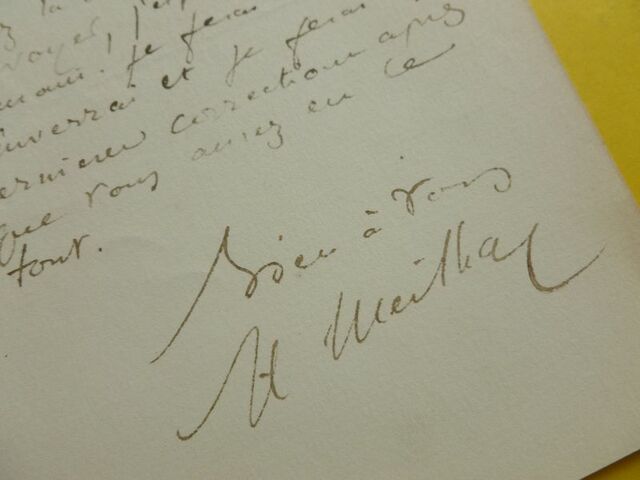 la
voyer, j'es
main. Je ferai
enverrai et je ferai
dernières corrections après
que vous aurez eu le
tout.
Bien à vous
H Meilhac